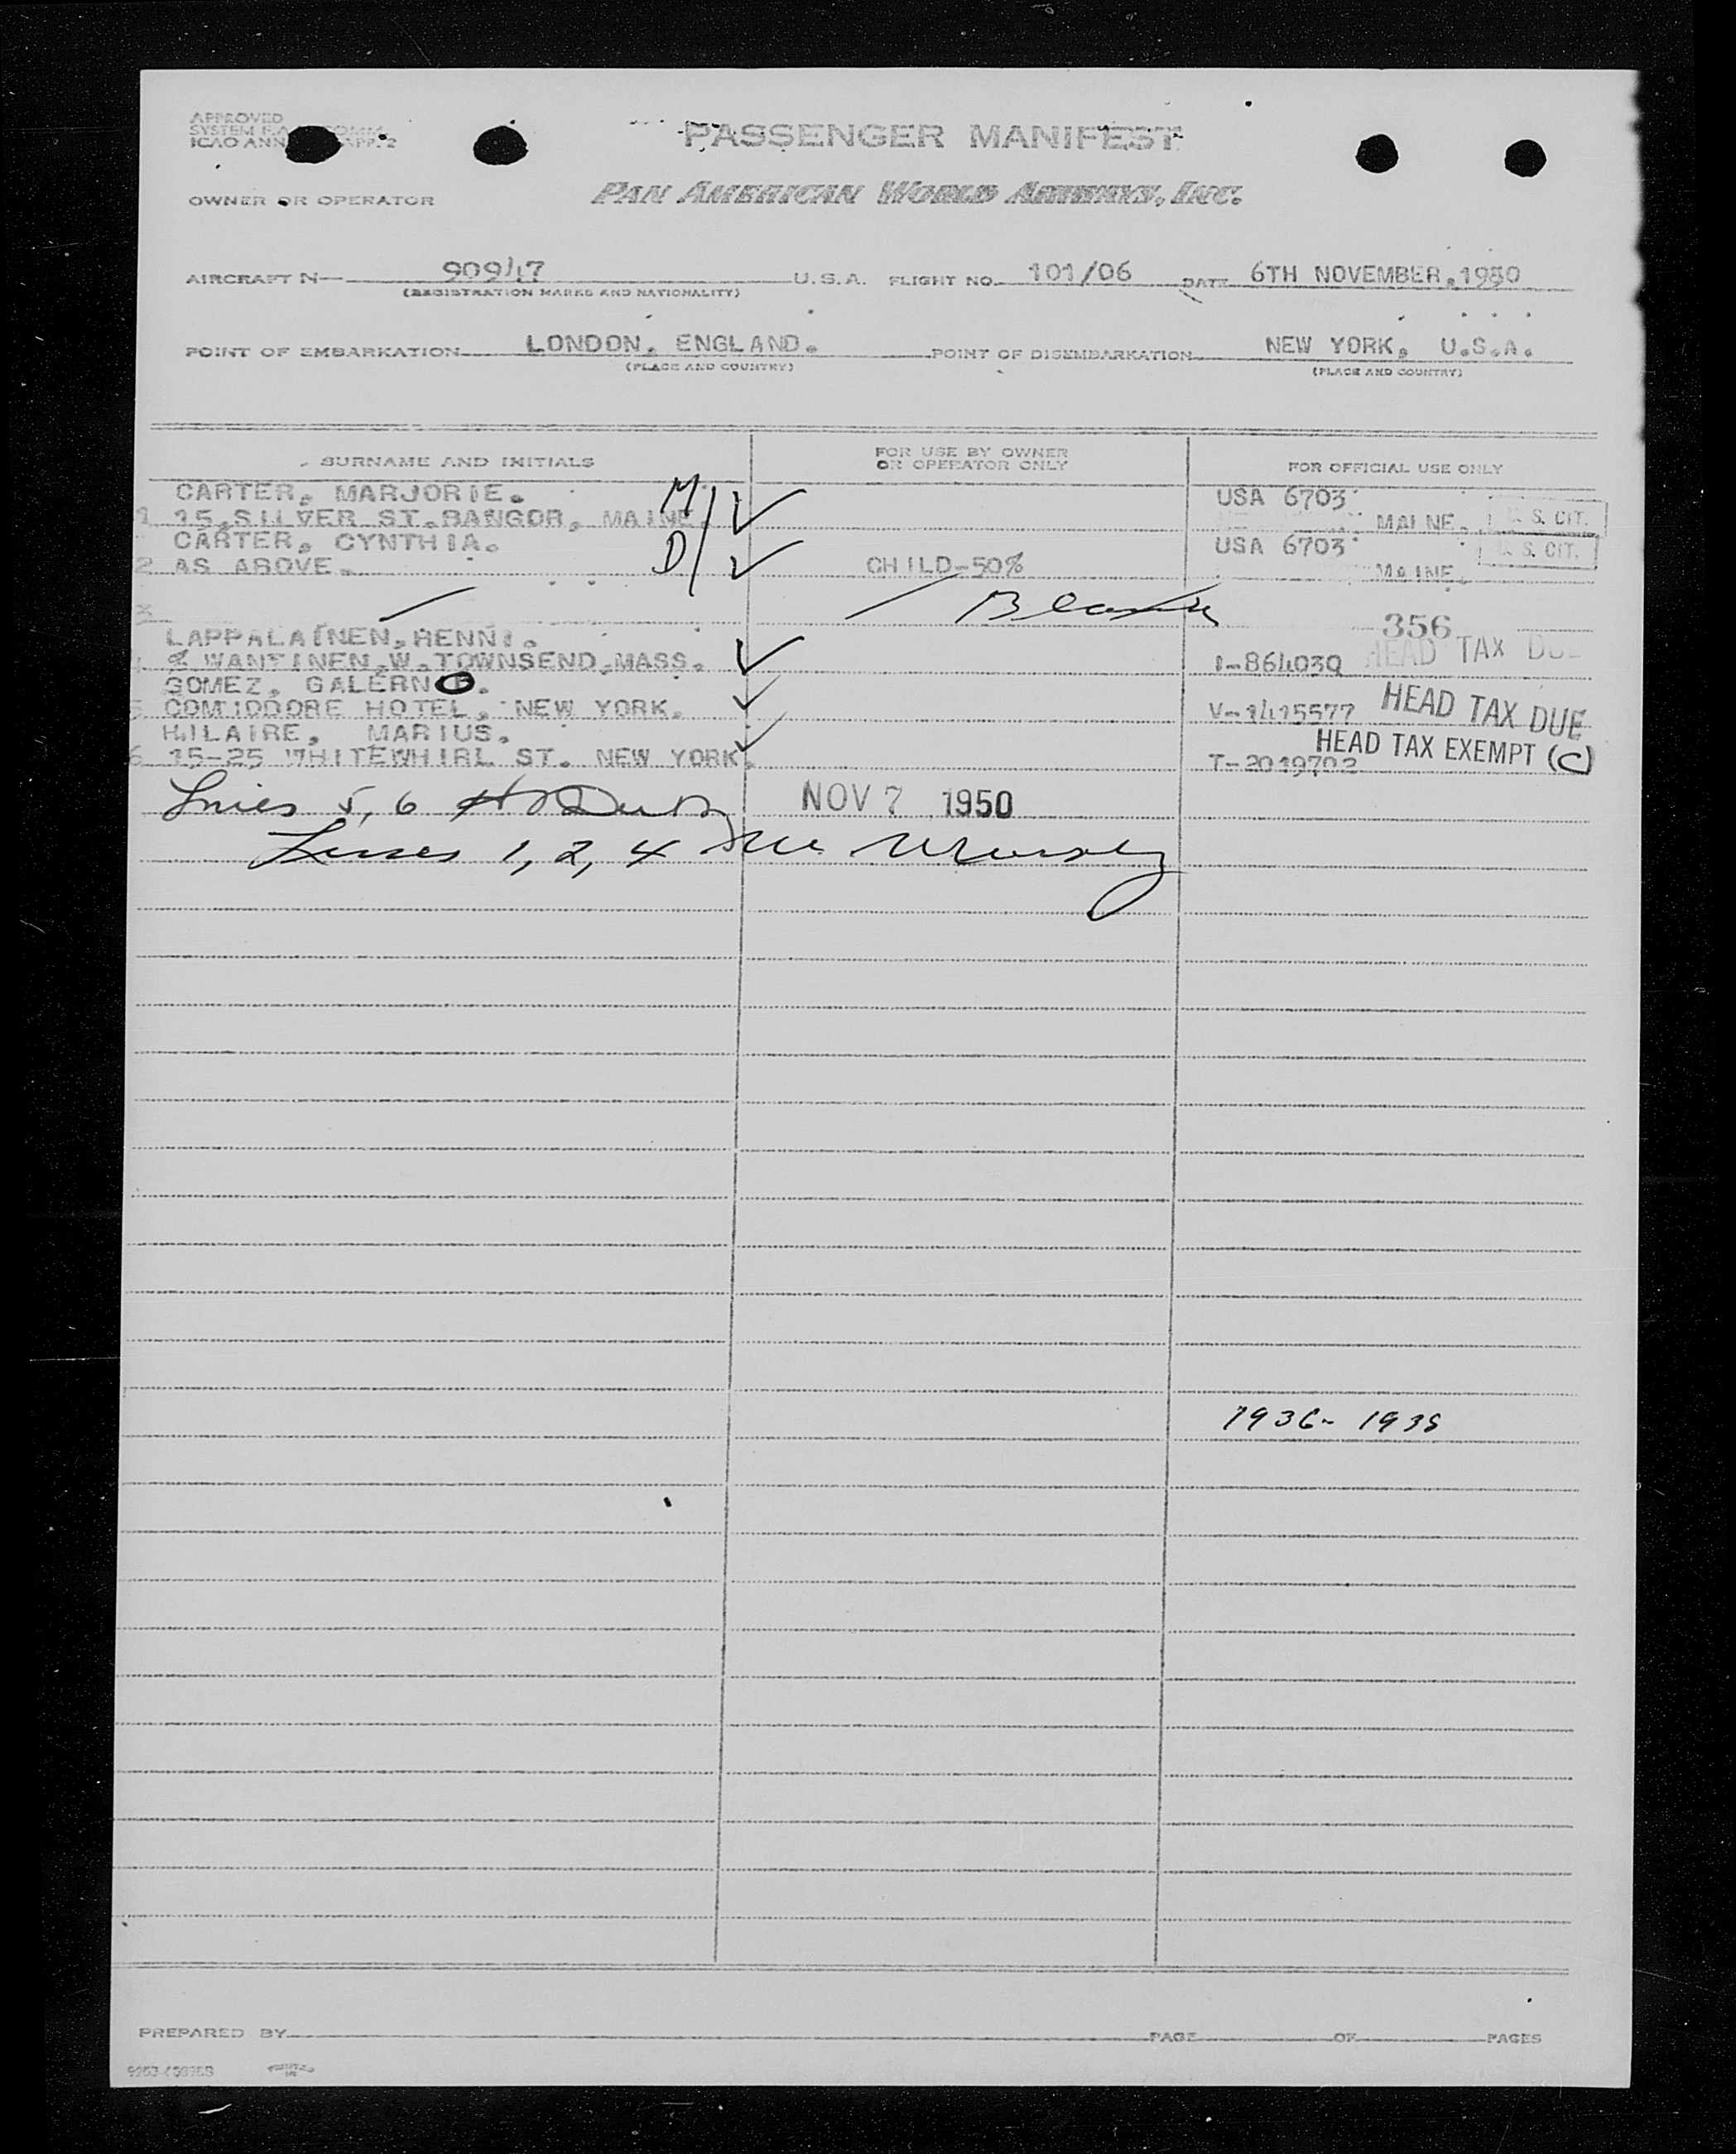 APPROVED
PASSENGER MANIFEST
SYSTEM
ICAO ANN APP. 2
OWNER OR OPERATOR PAN AMERICAN WORLD AIRWAYS, INC.
AIRCRAFT N— 90947 U.S.A. FLIGHT NO. 101/06 DATE 6TH NOVEMBER, 1950
(REGISTRATION MARKS AND NATIONALITY)
POINT OF EMBARKATION LONDON, ENGLAND. POINT OF DISEMBARKATION NEW YORK, U.S.A.
(PLACE AND COUNTRY) (PLACE AND COUNTRY)
SURNAME AND INITIALS FOR USE BY OWNER OR OPERATOR ONLY FOR OFFICIAL USE ONLY
CARTER, MARJORIE. M USA 6703
1 15, SILVER ST. BANGOR, MAINE. MAINE. U.S. CIT.
CARTER, CYNTHIA. D USA 6703
2 AS ABOVE. CHILD-50% MAINE. U.S. CIT.
3 Blank
356
LAPPALAINEN, HENNI. HEAD TAX DUE
4 % WANTINEN, W. TOWNSEND, MASS. I-864030
GOMEZ, GALERNO.
5 COMMODORE HOTEL, NEW YORK. V-1415577 HEAD TAX DUE
HILAIRE, MARIUS. HEAD TAX EXEMPT (C)
6 15-25 WHITEWHIRL ST. NEW YORK. T-2019702
Lines 5, 6 NOV 7 1950
Lines 1, 2, 4
1936- 1938
PREPARED BY PAGE OF PAGES